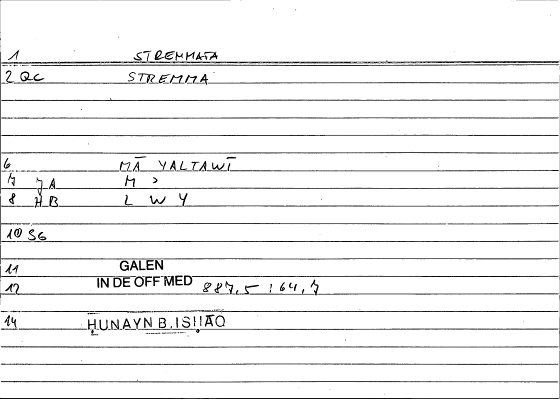 1 STREMMATA
2 QC STREMMA
6 MĀ YALTAWĪ
7 JA M ɔ
8 HB L W Y
10 SG
11 GALEN
12 IN DE OFF MED 887,5 : 64,7
14 ḤUNAYN B. ISḤĀQ